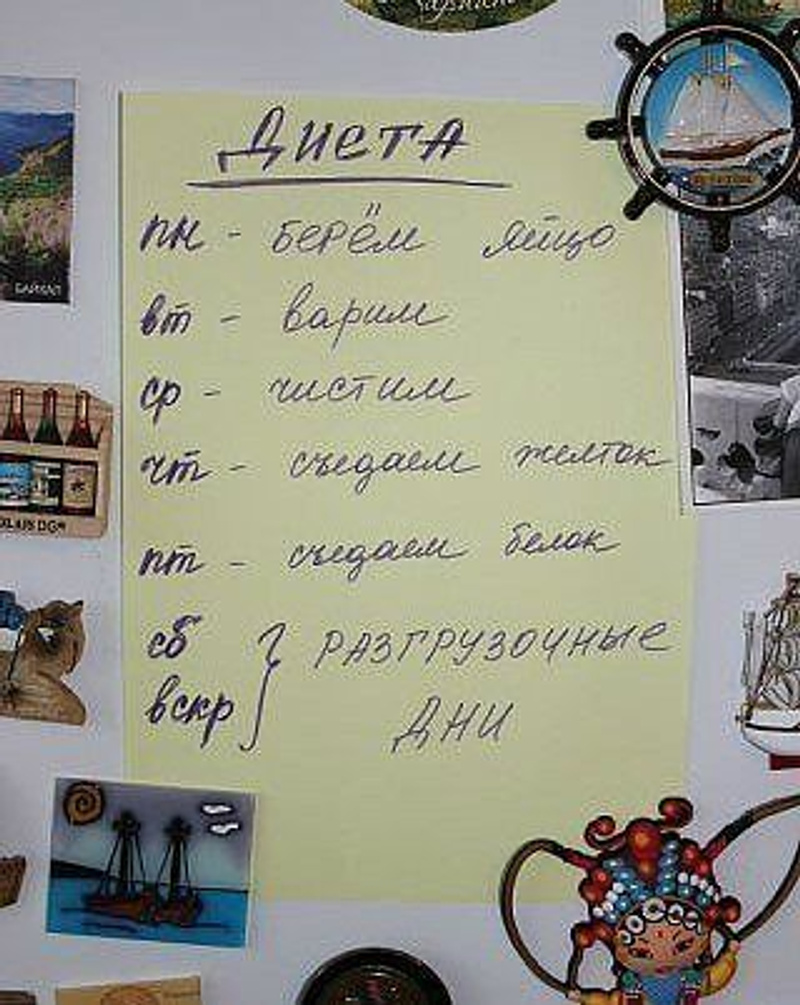 Диета
пн - берём яйцо
вт - варим
ср - чистим
чт - съедаем желток
пт - съедаем белок
сб } РАЗГРУЗОЧНЫЕ
вскр ДНИ
БАЙКАЛ